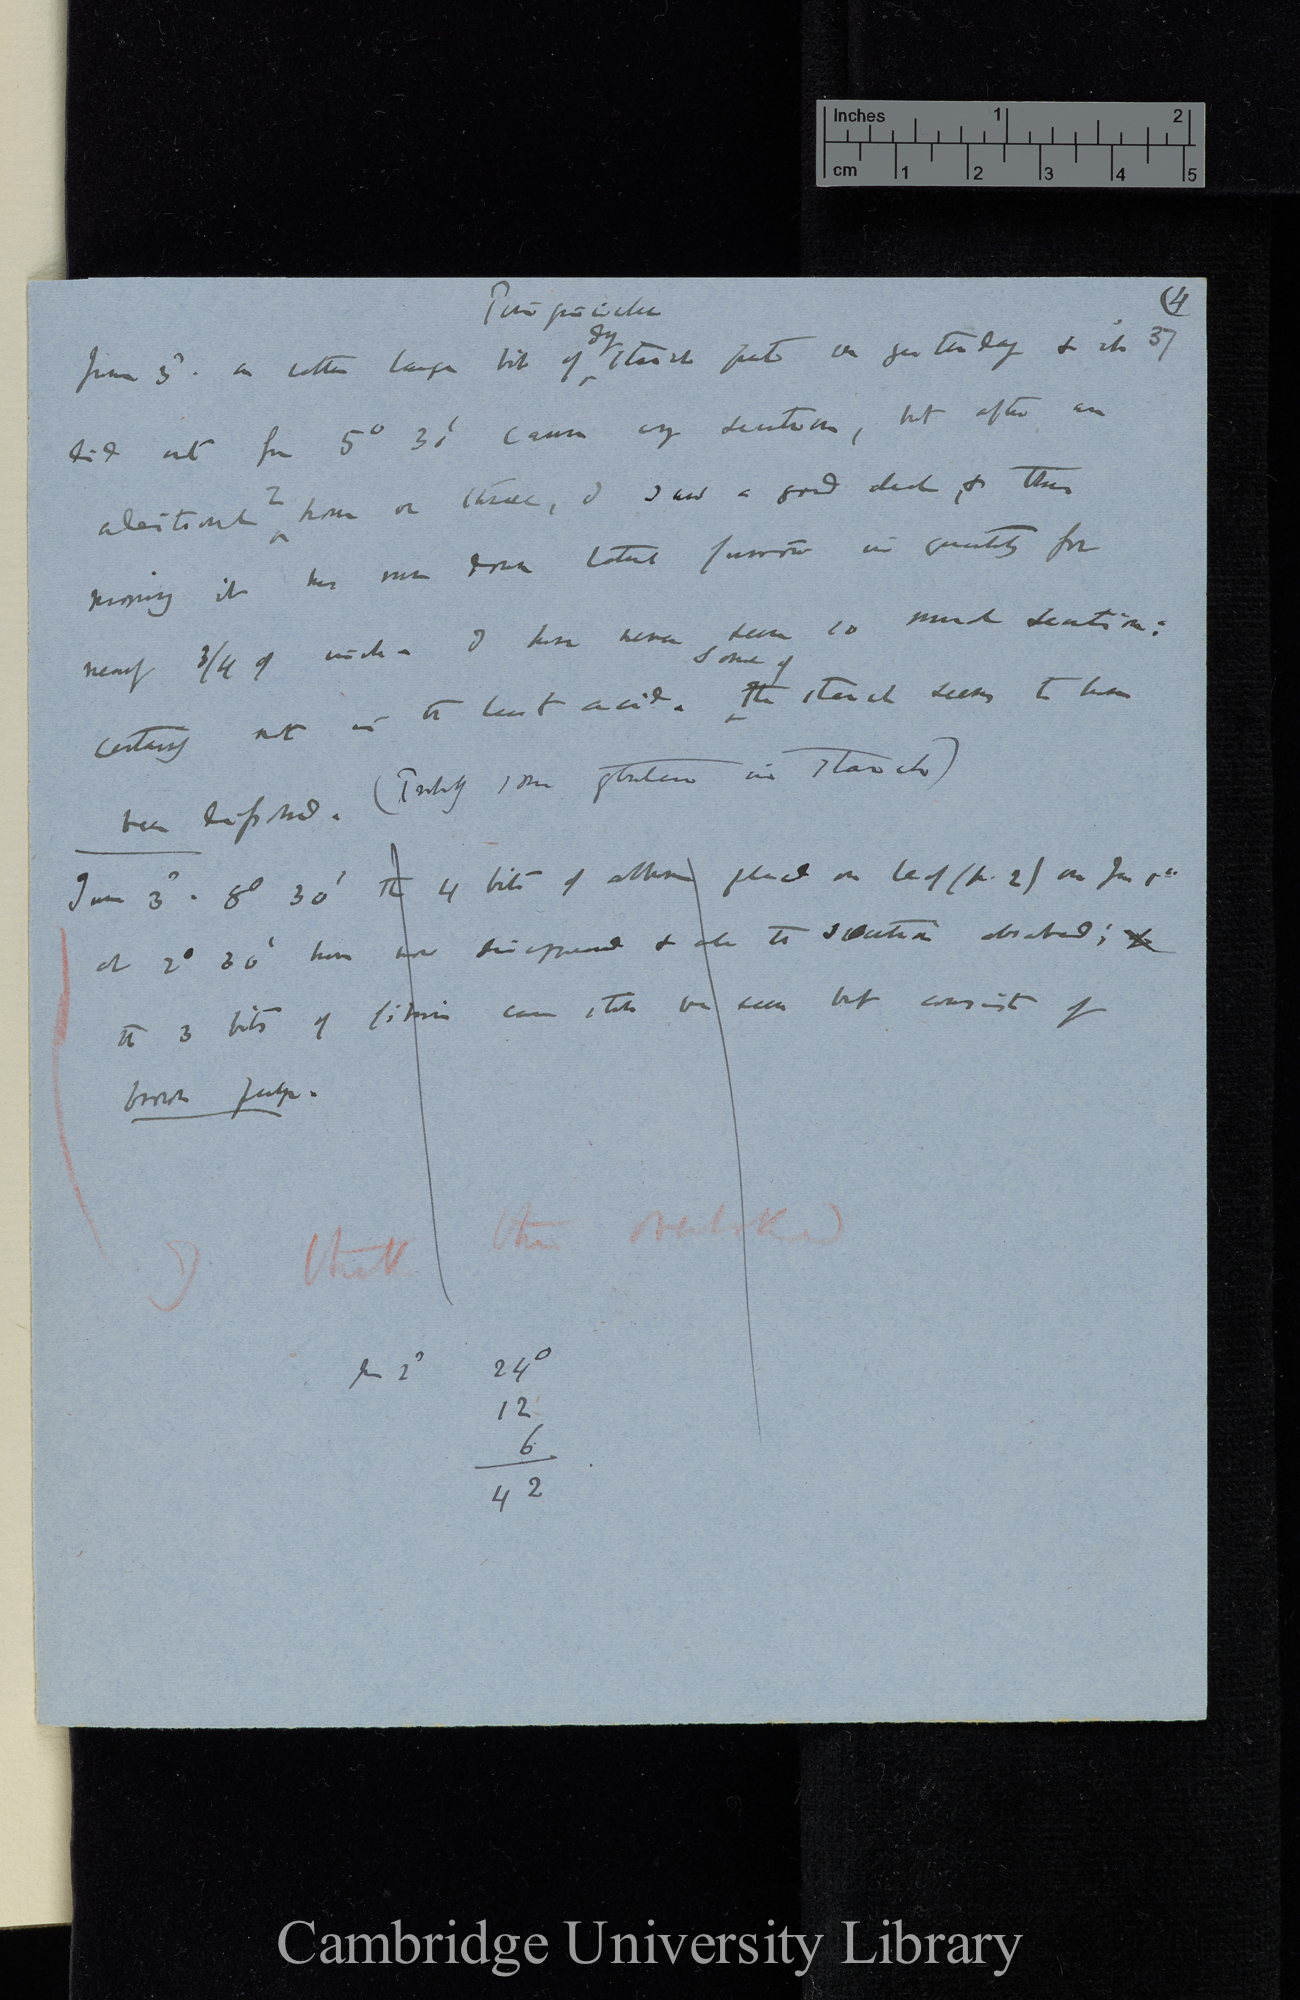 Inches 1 2
cm 1 2 3 4 5
Pinguicula
(4
37
June 3d. on rather large bit of dry starch put on yesterday & it
did not for 5° 30' cause any secretion, but after an
additional 2 hours or three, I saw a good deal, & this
morning it has run down lateral furrow in quantity for
nearly 3/4 of inch. I have never seen so much secretion:
certainly not in the least acid. Some of the starch seems to have
been dissolved. (Probably some gluten in starch)
June 3d. 8° 30' The 4 bits of albumen placed on leaf (p. 2) on June 1st
at 2° 30' have now disappeared & all the secretion absorbed; &
the 3 bits of fibrin can still be seen but consist of
brown pulp.
I think this overlooked
In 2d 24°
12
6
42
Cambridge University Library